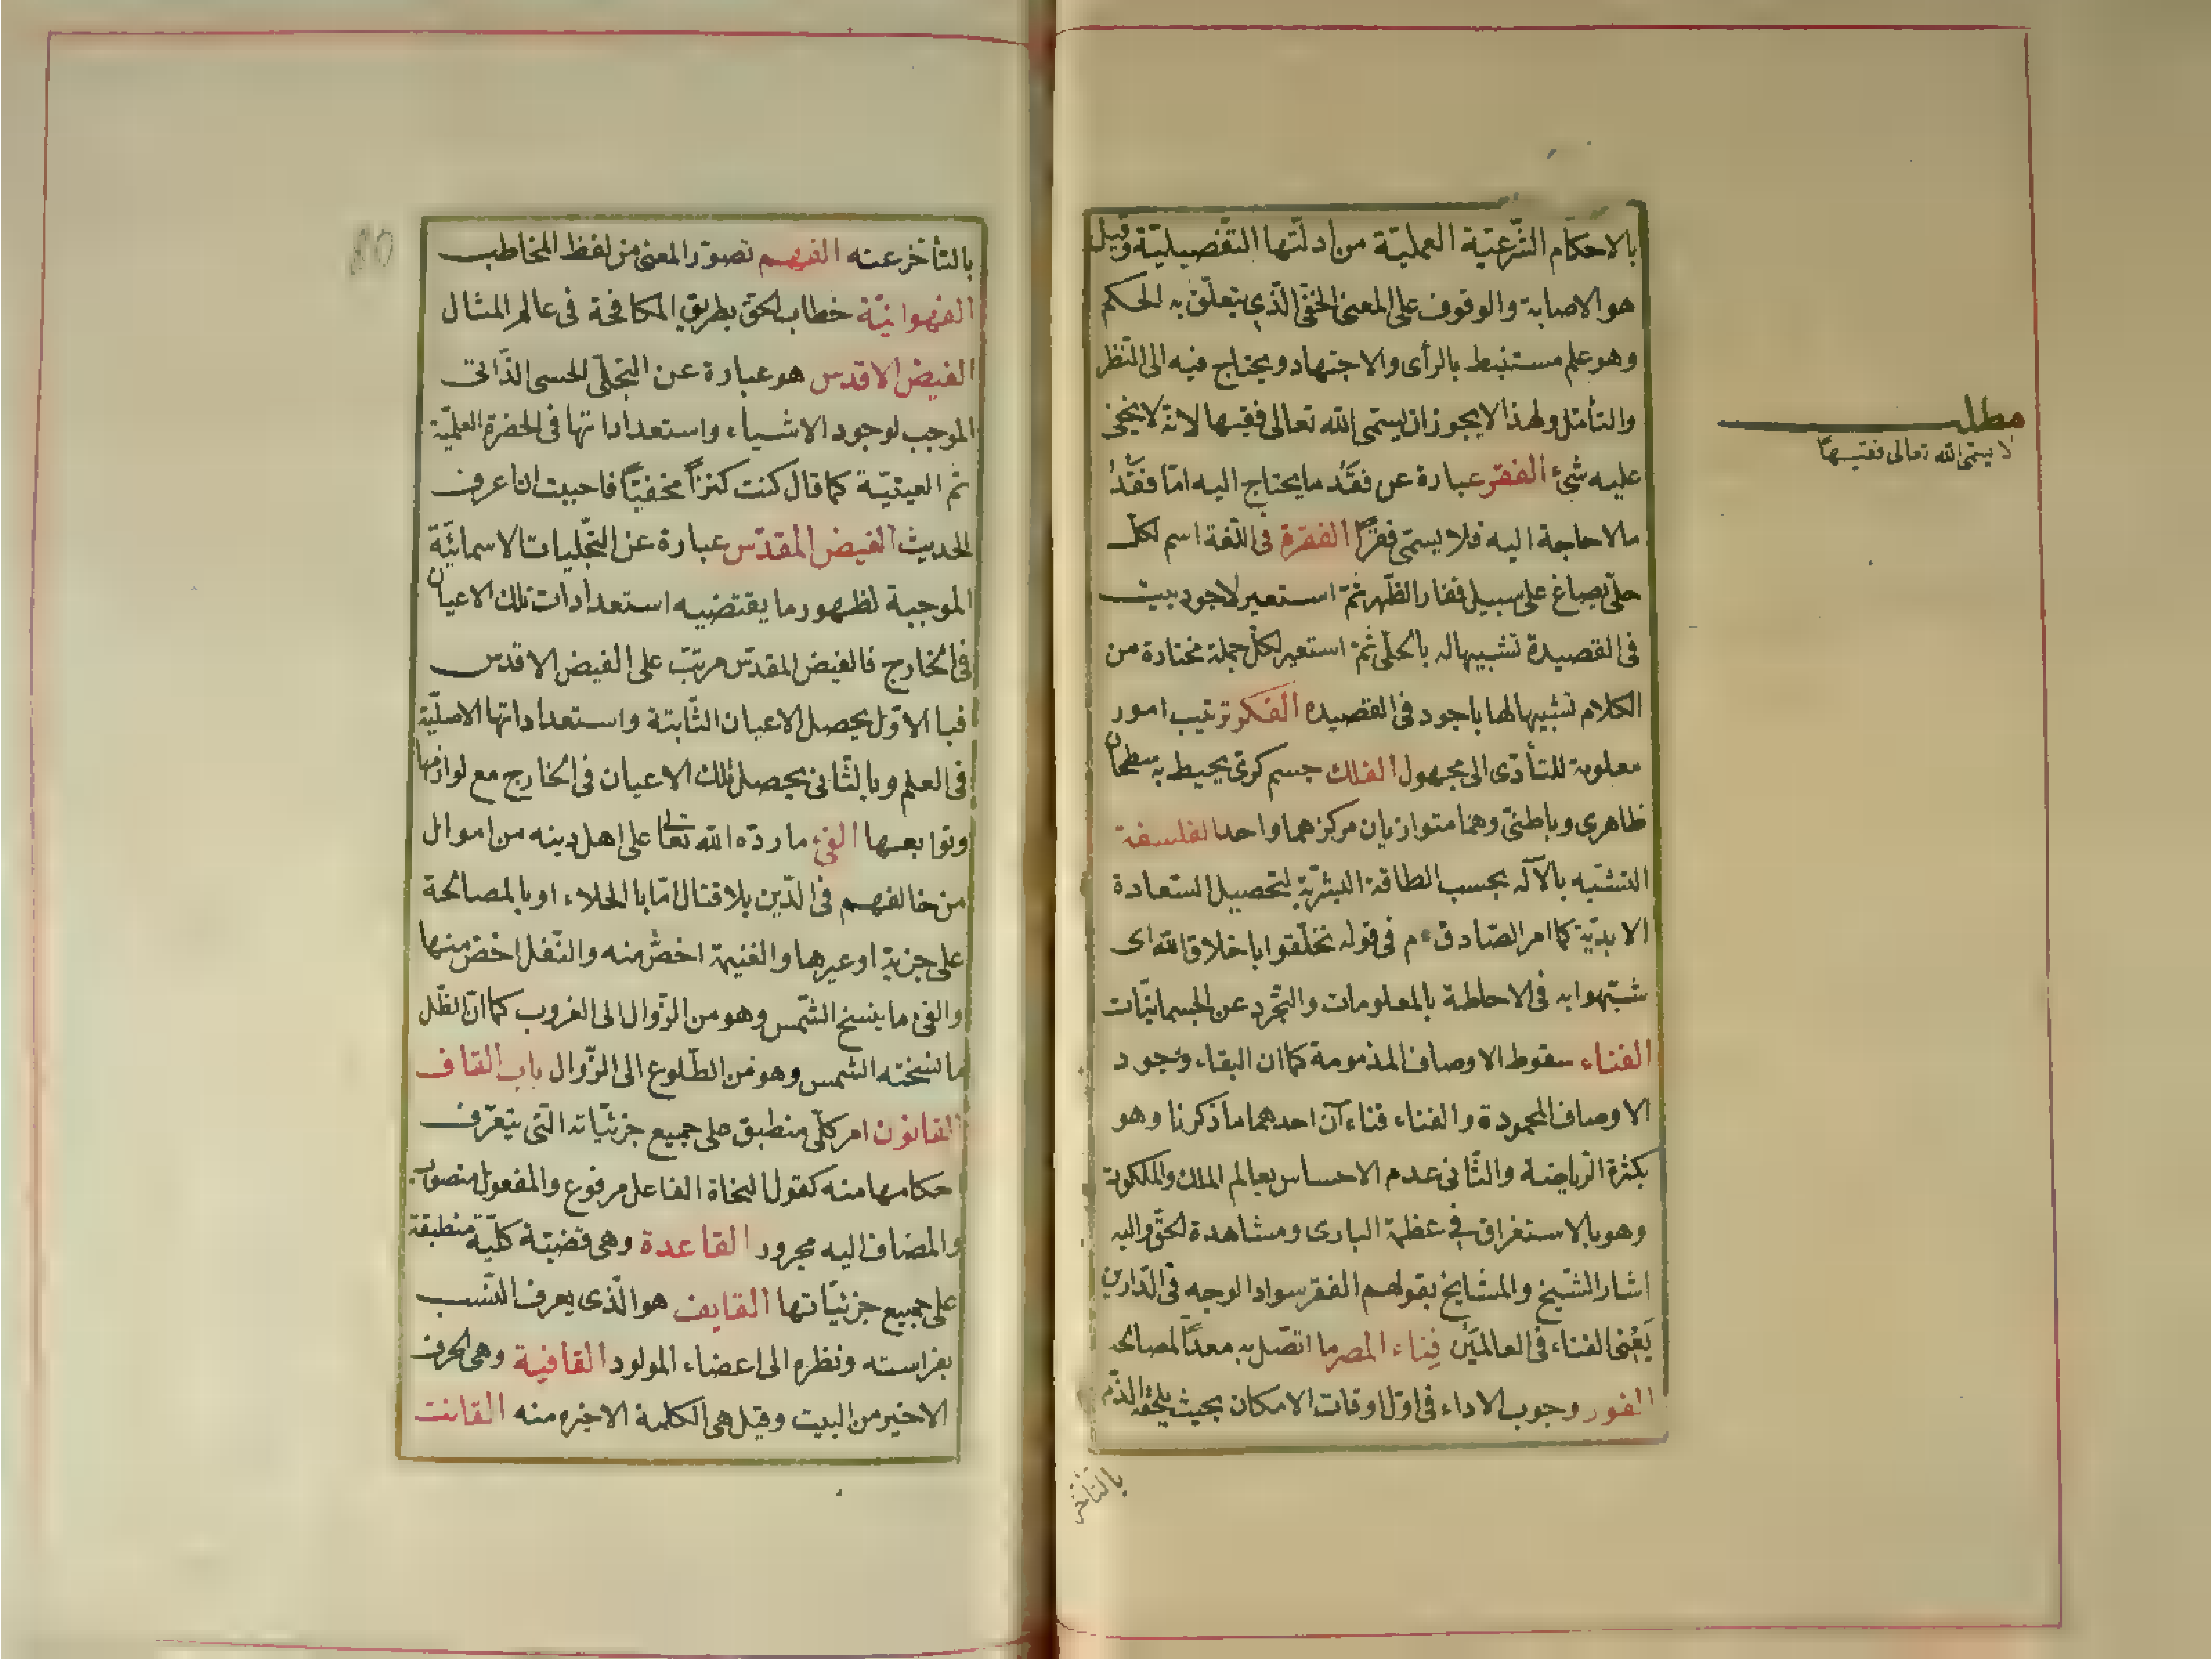 بالاحكام الشّرعيّة العمليّة من ادلّتها التّفصيليّة وقيل
هو الاصابة والوقوف على المعنى الخفّى الّذى يتعلّق به الحكم
وهو علم مستنبط بالرأى والاجتهاد ويحتاج فيه الى النّظر
والتأمّل ولهذا لا يجوز ان يسمّى الله تعالى فقيها لانّه لا يخفى
عليه شئ الفقر عبارة عن فقد ما يحتاج اليه امّا فقد
ما لا حاجة اليه فلا يسمّى فقرًا الفقرة فى اللّغة اسم لكلّ
حلّى يصاغ على سبيل فقار الظّهر ثمّ استعير لاجود بيت
فى القصيدة تشبيها له بالحلّى ثمّ استعير لكلّ جملة مختارة من
الكلام تشبيها لها باجود فى القصيده الفكر ترتيب امور
معلومة للتأدّى الى مجهول الفلك جسم كرىّ يحيط به سطحان
ظاهرى وباطنىّ وهما متوازيان مركزهما واحد الفلسفة
التشبّه بالآله بحسب الطاقة البشريّة لتحصيل السّعادة
الابديّة كما امر الصّادق ءم فى قوله تخلّقوا باخلاق الله اى
شبّهوا به فى الاحاطة بالمعلومات والتّجرد عن الجسمانيّات
الفناء سقوط الاوصاف المذمومة كما ان البقاء وجود
الاوصاف المحمودة والفناء فناءآن احدهما ما ذكرنا وهو
بكثرة الرّياضة والثّانى عدم الاحساس بعالم الملك والملكوت
وهو بالاستغراق فى عظمة البارى ومشاهدة الحقّ واليه
اشار الشّيخ والمشايخ بقولهم الفقر سواد الوجه فى الدّارين
يَعْنى الفناء فى العالمَيْن فِناء المصر ما اتصّل به معدًّا لمصالحه
الفور وجوب الاداء فى اوّل اوقات الامكان بحيث يلحقه الذّم
بالتأخّر
مطلب
لا يسمّى الله تعالى فقيهًا
بالتأخّر عنه الفهم تصوّر المعنى من لفظ المخاطب
الفهوانيّة خطاب الحقّ بطريق المكافحة فى عالم المثال
الفيض الاقدس هو عبارة عن التجلّى الحسى الذّاتى
الموجب لوجود الاشياء واستعداداتها فى الحضرة العلميّة
ثم العينيّة كما قال كنت كنزًا مخفيّا فاحببت ان اعرف
الحديث الفيض المقدّس عبارة عن التجّليات الاسمائيّة
الموجبة لظهور ما يقتضيه استعدادات تلك الاعيان
فى الخارج فالفيض المقدّس مرتبّ على الفيض الاقدس
فبالاوّل يحصل الاعيان الثّابتة واستعداداتها الاصليّة
فى العلم وبالثّانى يحصل تلك الاعيان فى الخارج مع لوازمها
وتوابعها الفئ ما ردّه الله تعالى على اهل دينه من اموال
من خالفهم فى الدّين بلا قتال امّا بالجلاء او بالمصالحة
على جزية او غيرها والغنيمة اخصّ منه والنّفل اخصّ منها
والفئ ما ينسخ الشّمس وهو من الزّوال الى الغروب كما انّ الظّل
ما نسخته الشمس وهو من الطّلوع الى الزّوال باب القاف
القانون امر كلّى منطبق على جميع جزئيّاته الّتى يتعرّف
حكامها منه كقول النحاة الفاعل مرفوع والمفعول منصوب
والمضاف اليه مجرور القاعدة وهى قضيّة كلّيّة منطبقة
على جميع جزئيّاتها القايف هو الّذى يعرف النّسب
بفراسته ونظره الى اعضاء المولود القافية وهى الحرف
الاخير من البيت وقيل هى الكلمة الاخيره منه القانت